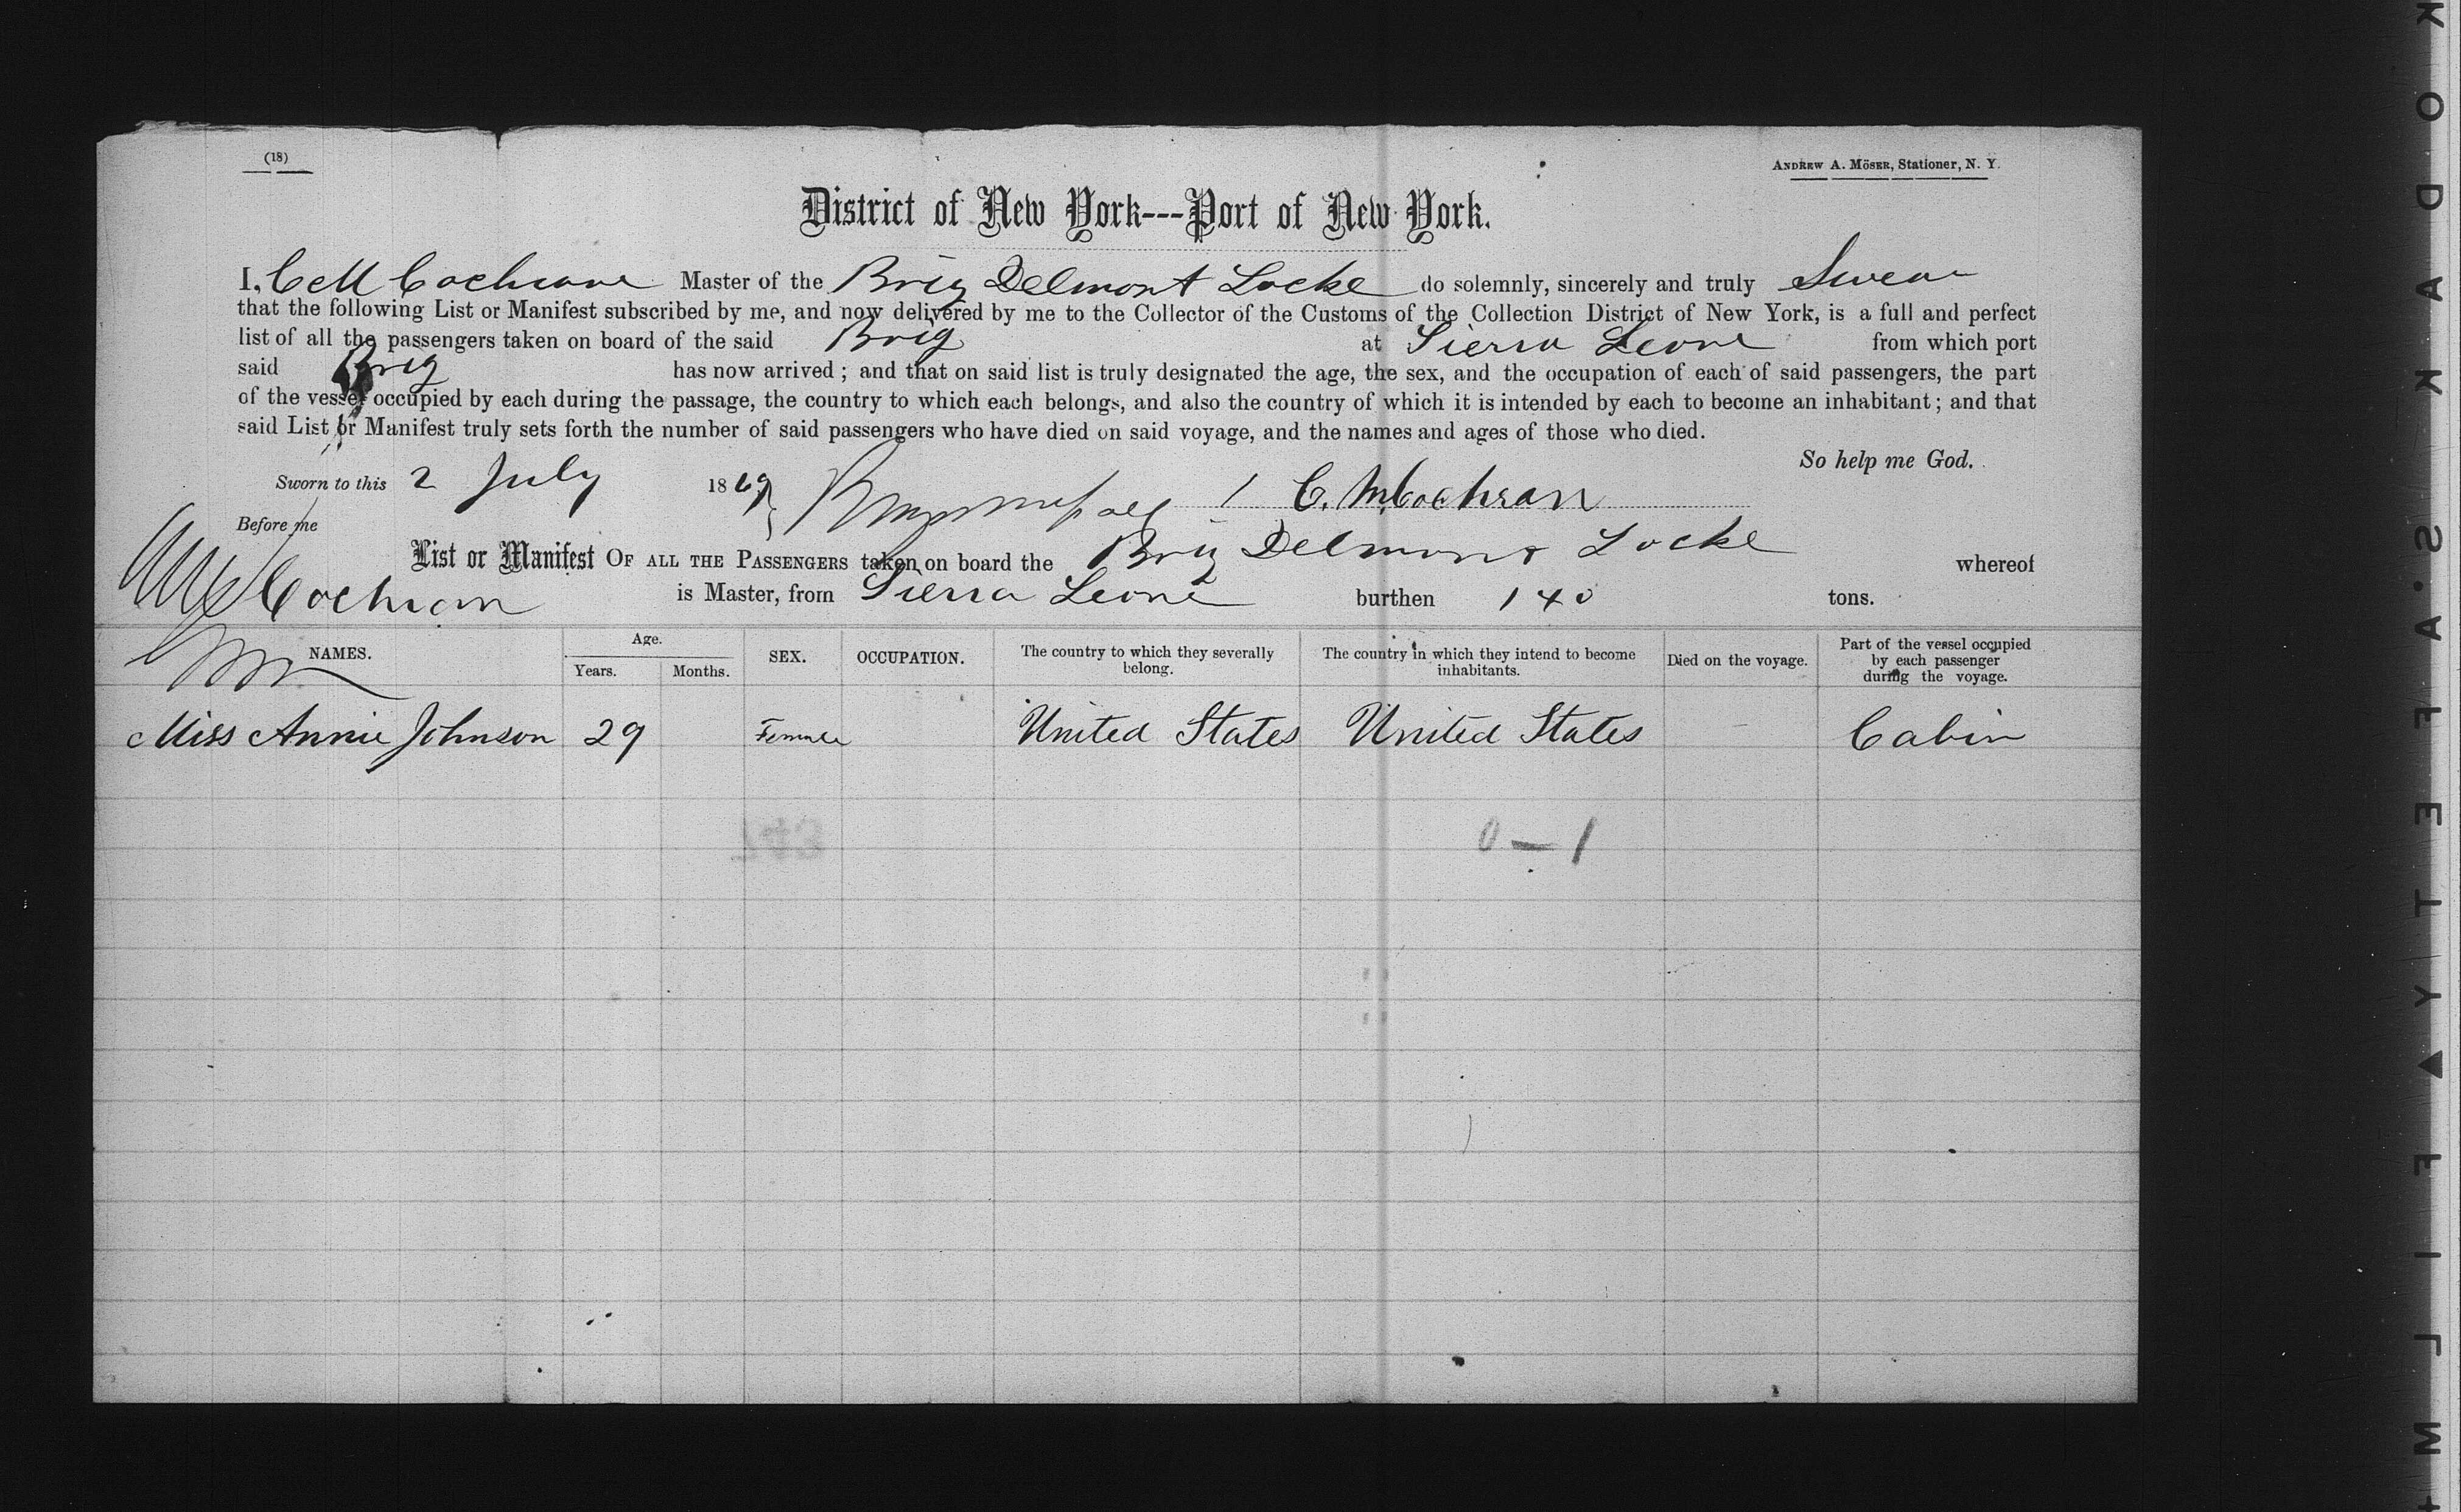 (18)
ANDREW A. MÖSER, Stationer, N. Y.
District of New York---Port of New York.
I, C M Cochrane Master of the Brig Delmont Locke do solemnly, sincerely and truly Swear
that the following List or Manifest subscribed by me, and now delivered by me to the Collector of the Customs of the Collection District of New York, is a full and perfect
list of all the passengers taken on board of the said Brig at Sierra Leone from which port
said Brig has now arrived ; and that on said list is truly designated the age, the sex, and the occupation of each of said passengers, the part
of the vessel occupied by each during the passage, the country to which each belongs, and also the country of which it is intended by each to become an inhabitant ; and that
said List or Manifest truly sets forth the number of said passengers who have died on said voyage, and the names and ages of those who died.
So help me God.
Sworn to this 2 July 1869 C. M. Cochran
Before me
List or Manifest OF ALL THE PASSENGERS taken on board the Brig Delmont Locke whereof
Cochran is Master, from Sierra Leone burthen 140 tons.
NAMES. Age. Years. Months. SEX. OCCUPATION. The country to which they severally belong. The country in which they intend to become inhabitants. Died on the voyage. Part of the vessel occupied by each passenger during the voyage.
Miss Annie Johnson 29 Female United States United States Cabin
0 — 1
KODAK S.A.F.E.T.Y ▲ F I L M